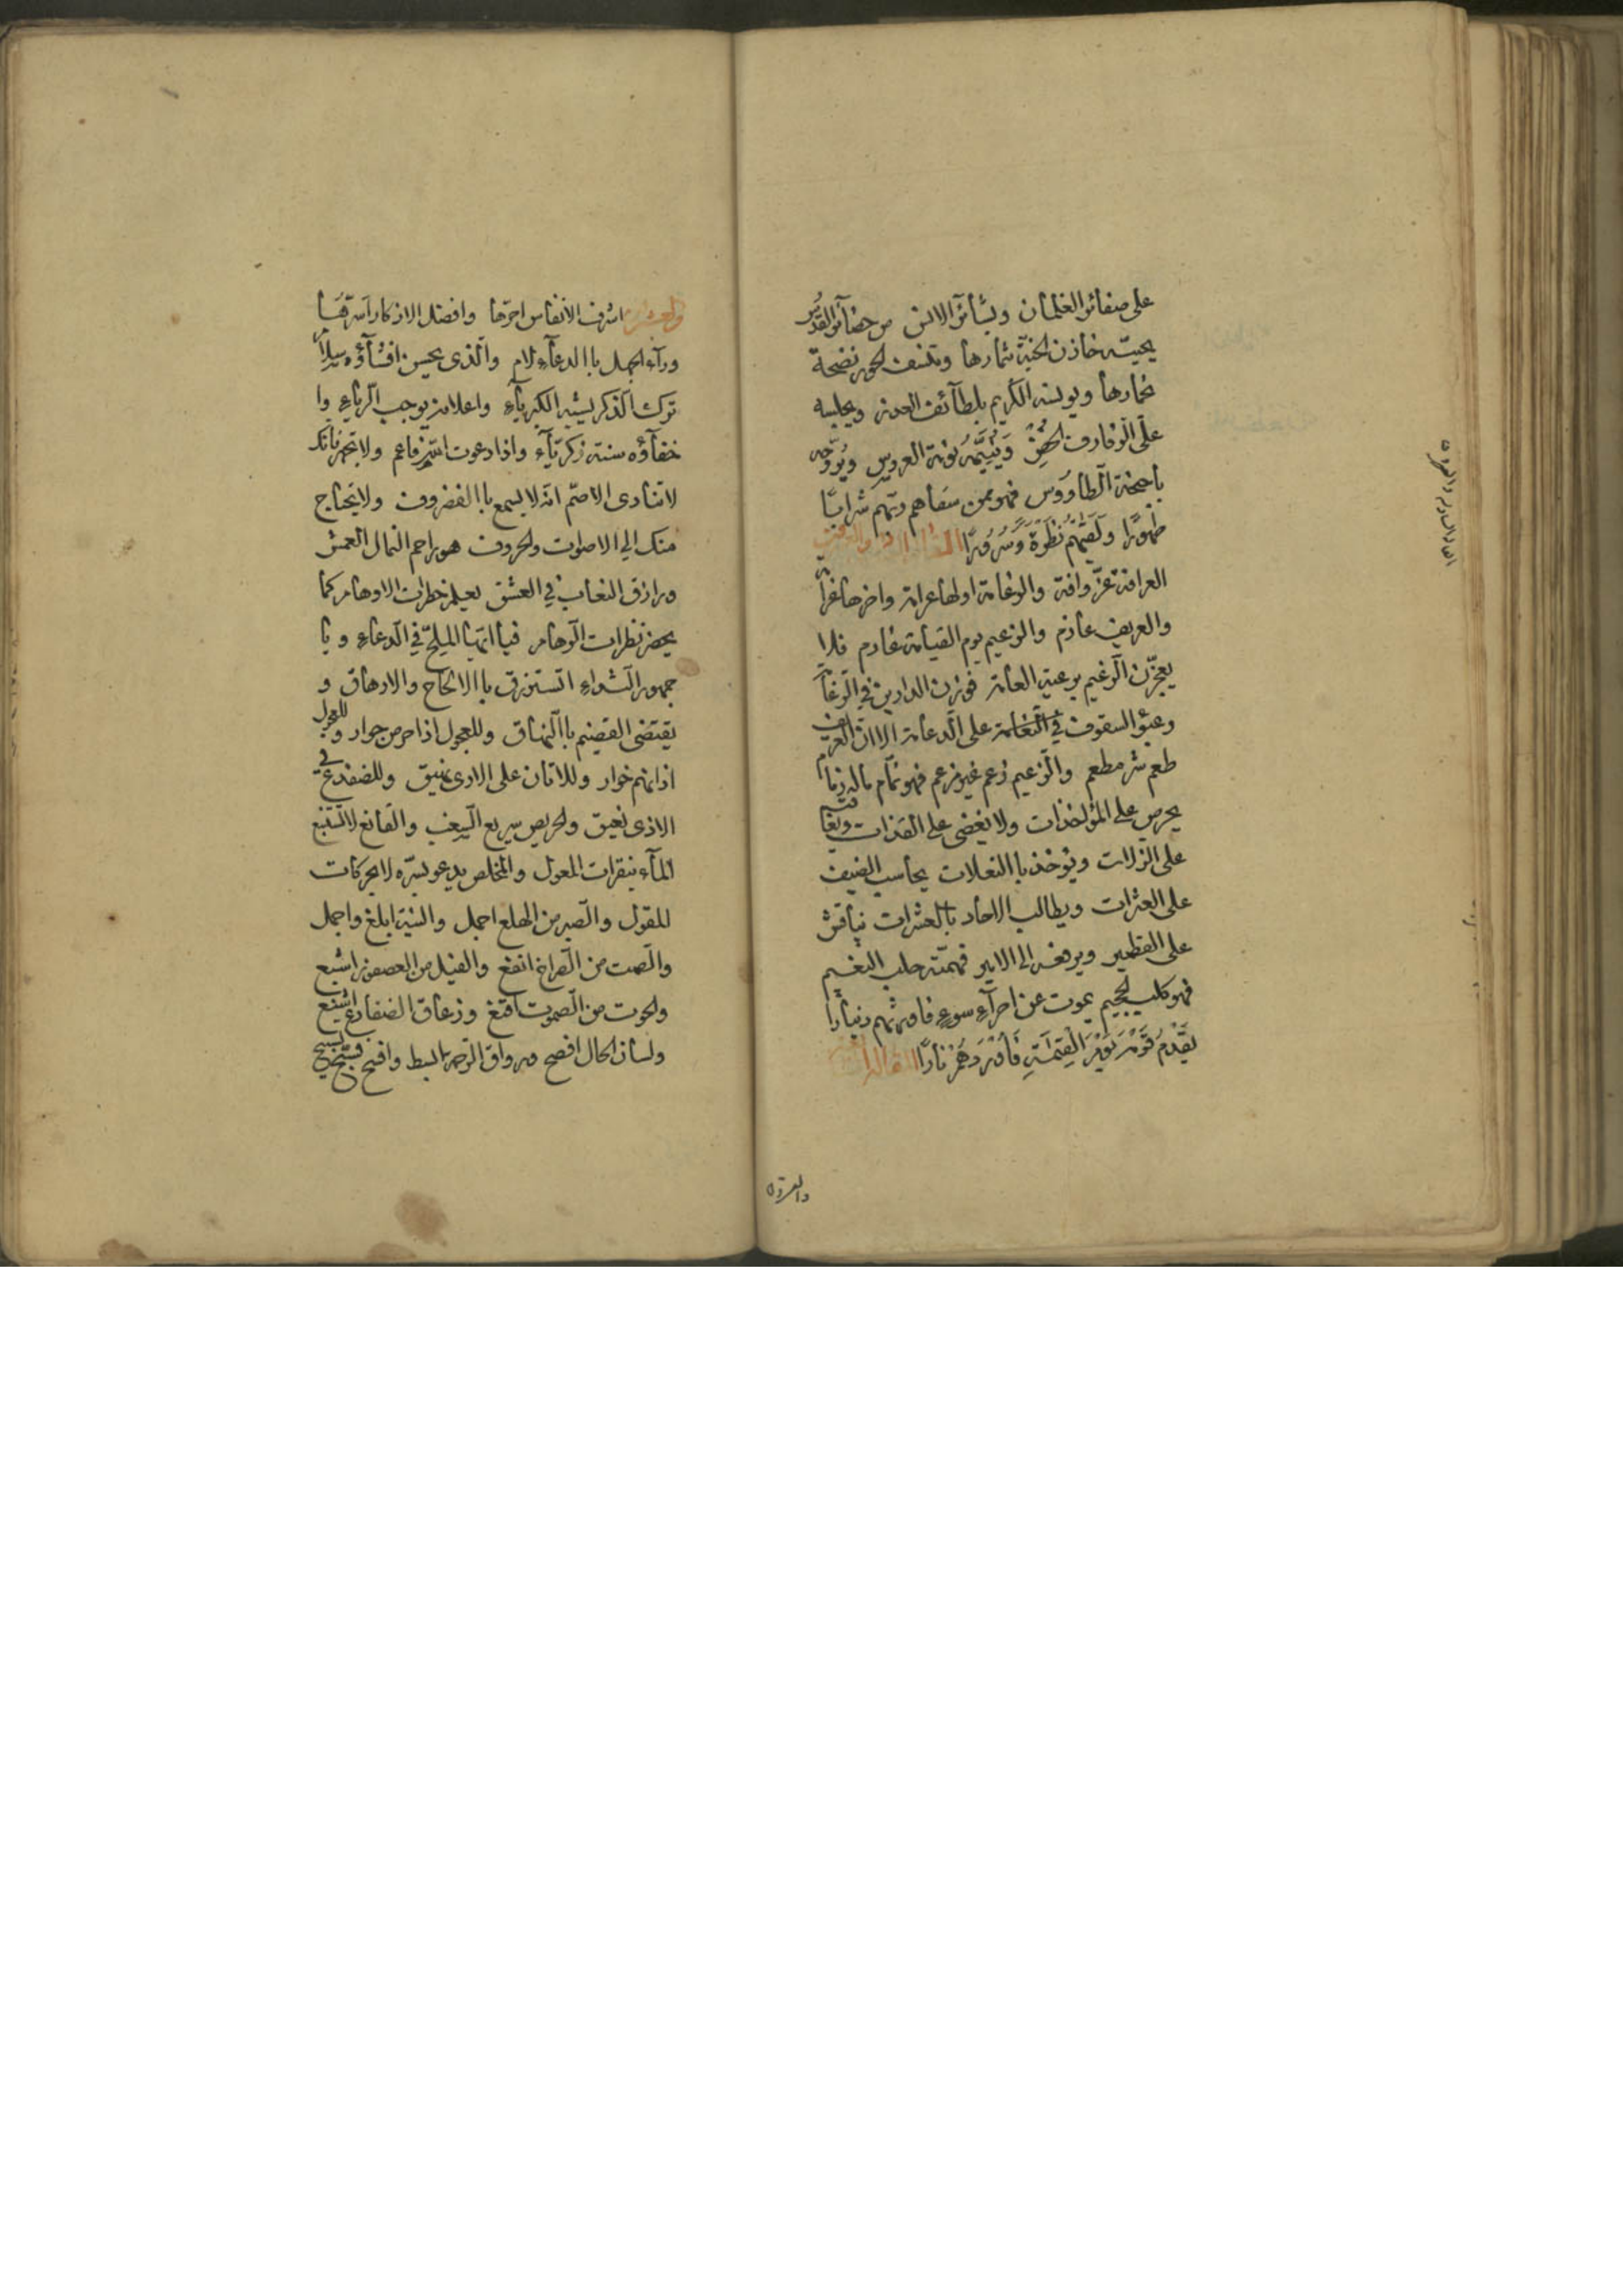 على ضفائر الغلمان وبشائر الانس من حضائر القدس
يحييه خازن الجنة ثمارها وتكشف الحور نضحة
خمارها ويونسه الكريم بلطائف العدن ويجلسه
على الرفارف الخضر ويشيمه نونة العروس ويروحه
باجنحة الطاووس فهو ممن سقاهم ربهم شرابا
طهورا ولقيهم نظرة وسرورا المقالة الثانية والعشرون
العرافة عز وافة والزعامة اولها غرامة واخرها غرا
والعريف عازم والزعيم يوم القيامة غارم فلا
يغترن الزعيم برعية العامة فوزن الدارين في الزعا
وعبؤ السقوف في النعامة على الدعامة الا ان العريف
طعم شر مطعم والزعيم زعم غير مزعم فهو نمام ماله زما
يحرص على المؤاخذات ولا يغضى على القذات ويعا
قب
على الزلات ويؤخذ باالتعلات يحاسب الضيف
على العثرات ويطالب الاحاد بالعشرات يناقش
على القطمير ويرفعه الى الامير فهمته جلب النعيم
فهو كلب الجحيم يموت عن امراء سوء فاورثهم دنيارا
يقدم قومه يوم القيمة فاوردهم نارا المقالة الثالثة
والعشرون
والعشرون اشرف الانفاس احرها وافضل الاذكار اسرها
وراء الجهل باالدعاء لام والذى يحسن افشاؤه سلام
ترك الذكر يشبه الكبرياء واعلانه يوجب الرياء وا
خفاؤه سنة زكرياء واذا دعوت الله فاعم ولا تجهر فانك
لا تنادى الاصم انه لا يسمع باالغضروف ولا يحتاج
منك الى الاصوات والحروف هو راحم النمال العمش
ورازق النعاب في العش يعلم خطرات الاوهام كما
يحضر نظرات الوهام فيا ايها الملح في الدعاء ويا
جمهور الشواء اتسترزق باالالحاح والارهاق و
يقتضى القضيم باالنهاق وللعجول اذا حر من جوار وللعجول
اذا نهم خوار وللاتان على الارى نهيق وللضفدع في
الاذى نعيق والحريص سريع الشغب والقانع لا يستتبع
الماء بنقرات المعول والمخلص يدعو بسره لا بحركات
المقول والصبر من الهلع اجمل والنية ابلغ واجمل
والصمت من الصراخ انفع والفيل من العصفور اشبع
والحوت من الصموت اقنع وزعاق الضفادع اشنع
ولسان الحال افصح ورواق الرحمة بالبسط وافسح فسبح تسبيح